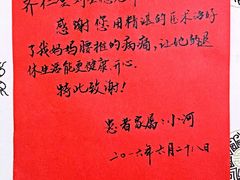 感谢您用精湛的医术治好
了我妈妈腰椎的病痛，让他的退
休生活能更健康、开心。
特此致谢！
患者家属：小河
二〇一六年六月二十八日